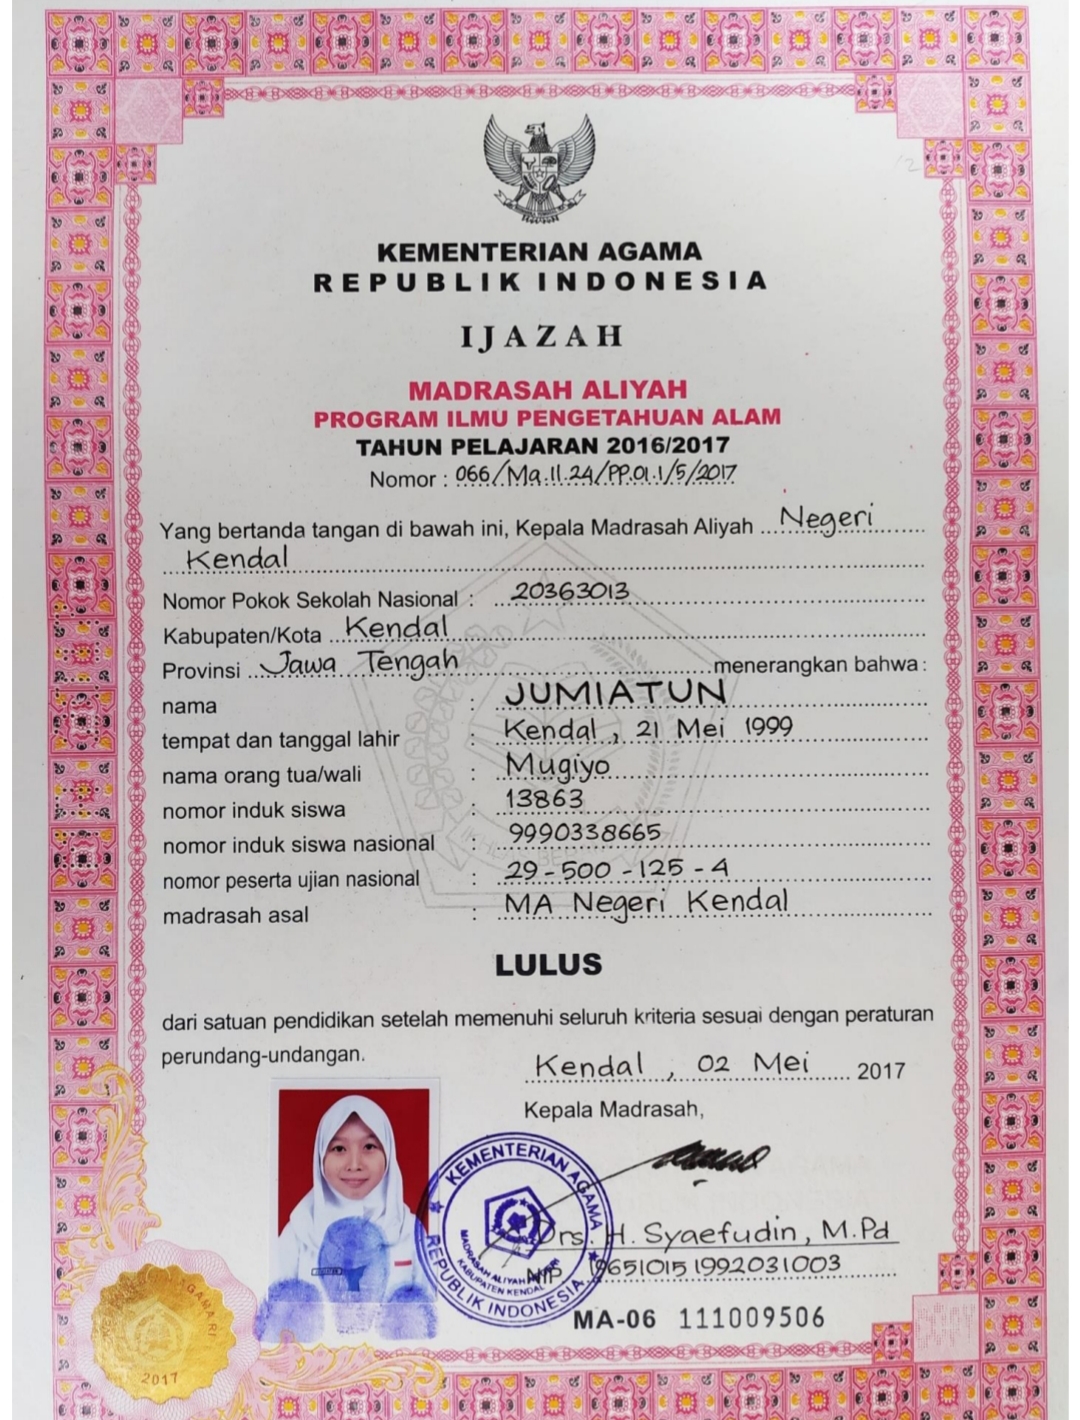 KEMENTERIAN AGAMA
REPUBLIK INDONESIA
IJAZAH
MADRASAH ALIYAH
PROGRAM ILMU PENGETAHUAN ALAM
TAHUN PELAJARAN 2016/2017
Nomor : 066/Ma.11.24/PP.01.1/5/2017
Yang bertanda tangan di bawah ini, Kepala Madrasah Aliyah Negeri
Kendal
Nomor Pokok Sekolah Nasional : 20363013
Kabupaten/Kota Kendal
Provinsi Jawa Tengah menerangkan bahwa :
nama : JUMIATUN
tempat dan tanggal lahir : Kendal, 21 Mei 1999
nama orang tua/wali : Mugiyo
nomor induk siswa : 13863
nomor induk siswa nasional : 9990338665
nomor peserta ujian nasional : 29-500-125-4
madrasah asal : MA Negeri Kendal
LULUS
dari satuan pendidikan setelah memenuhi seluruh kriteria sesuai dengan peraturan
perundang-undangan.
Kendal, 02 Mei 2017
Kepala Madrasah,
KEMENTERIAN AGAMA
MADRASAH ALIYAH
KABUPATEN KENDAL
REPUBLIK INDONESIA
Drs. H. Syaefudin, M.Pd
NIP 196510151992031003
MA-06 111009506
AGAMA RI
2017